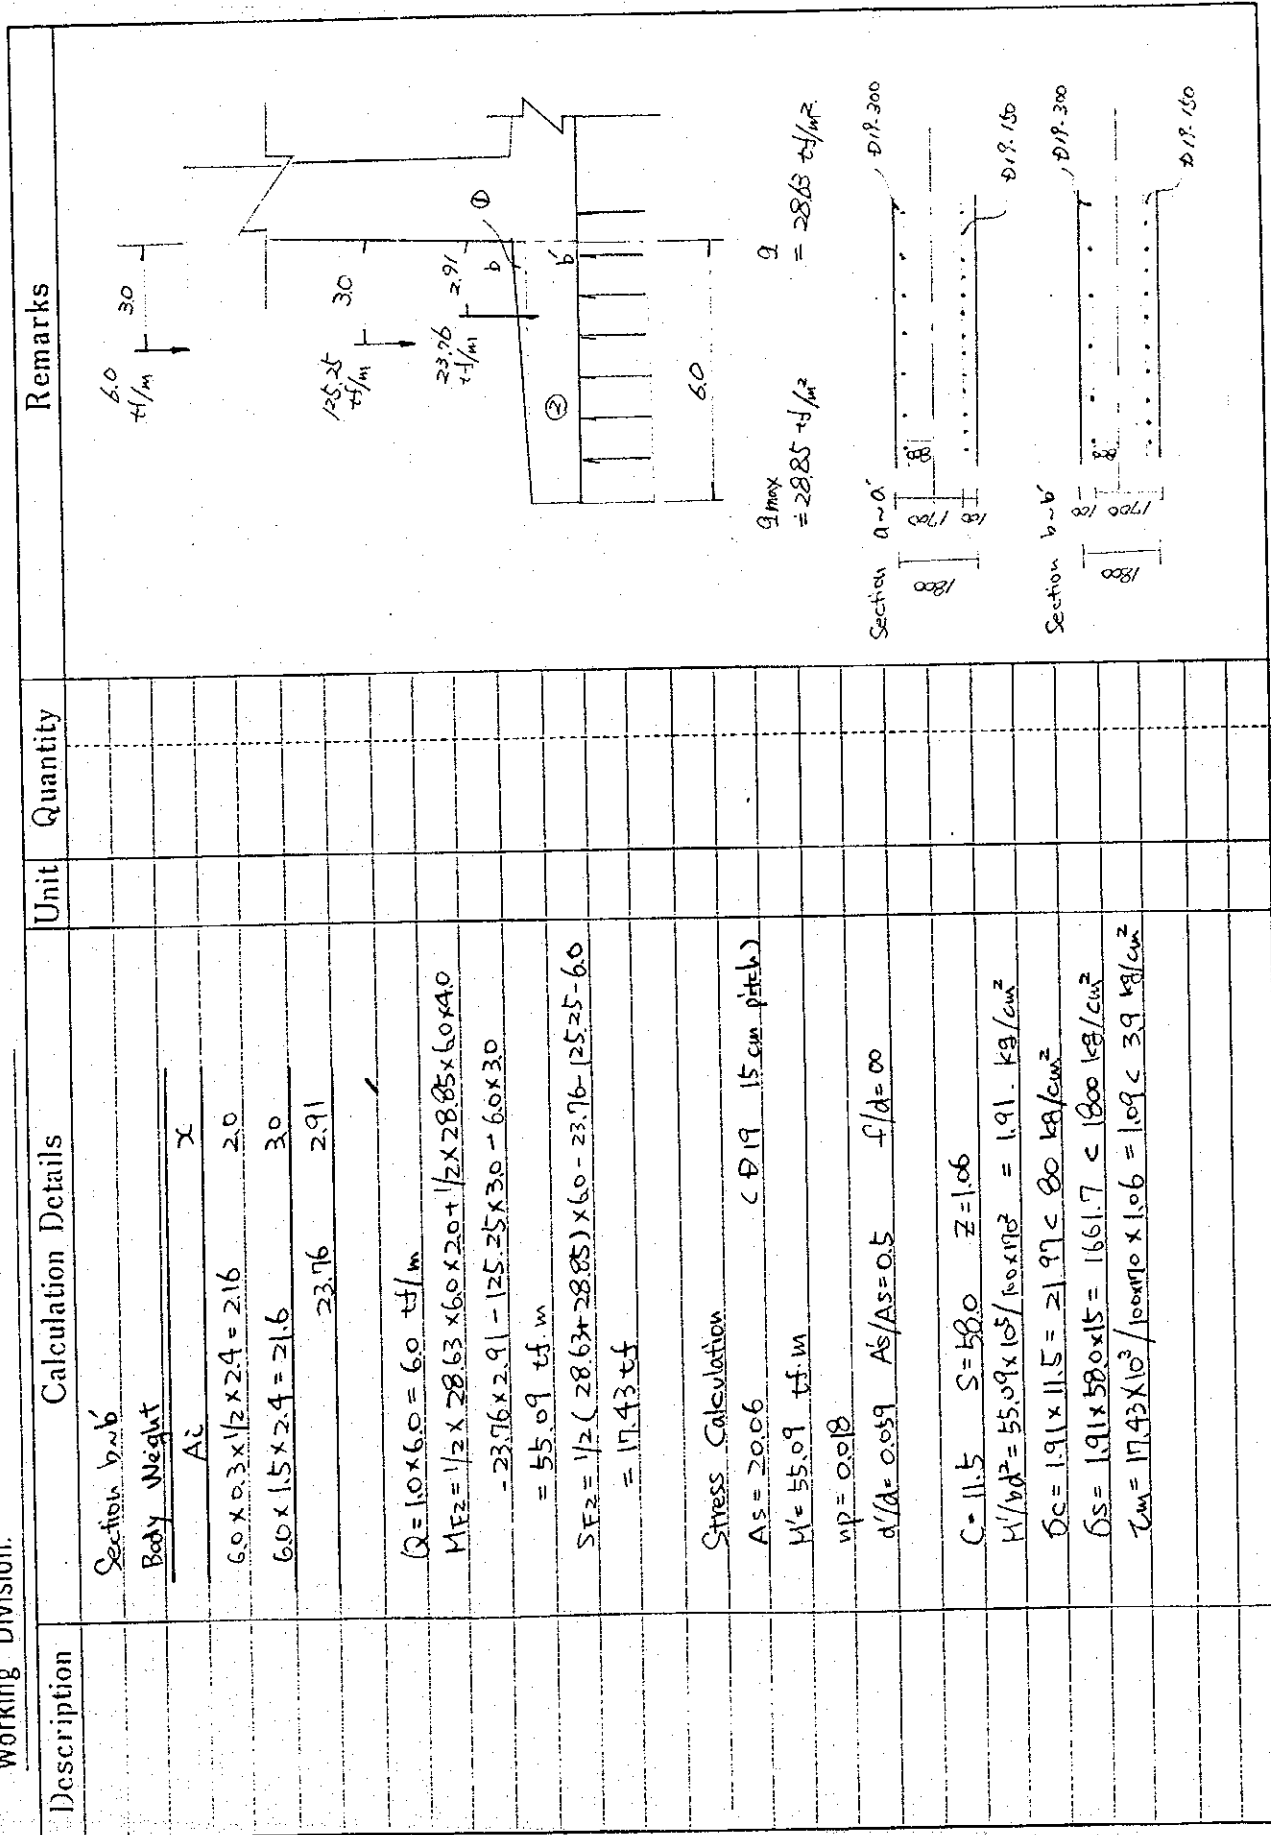 Working Division.
Description
Calculation Details
Unit
Quantity
Remarks
Section b~b'
Body Weght
Ai x
6.0 x 0.3 x 1/2 x 2.4 = 2.16 2.0
6.0 x 1.5 x 2.4 = 21.6 3.0
23.76 2.91
Q = 1.0 x 6.0 = 6.0 tf/m
MF2 = 1/2 x 28.63 x 6.0 x 2.0 + 1/2 x 28.85 x 6.0 x 4.0
- 23.76 x 2.91 - 125.25 x 3.0 - 6.0 x 3.0
= 55.09 tf.m
SF2 = 1/2 ( 28.63 + 28.85 ) x 6.0 - 23.76 - 125.25 - 6.0
= 17.43 tf
Stress Calculation
As = 20.06 ( D19 15 cm pitch )
M' = 55.09 tf.m
np = 0.018
d'/d = 0.059 A's/As = 0.5 f/d = ∞
C = 11.5 S = 58.0 Z = 1.06
M'/bd² = 55.09 x 10⁵ / 100 x 170² = 1.91. kg/cm²
σc = 1.91 x 11.5 = 21.97 < 80 kg/cm²
σs = 1.91 x 58.0 x 15 = 1661.7 < 1800 kg/cm²
τm = 17.43 x 10³ / 100 x 170 x 1.06 = 1.09 < 3.9 kg/cm²
6.0
tf/m
3.0
125.25
tf/m
3.0
23.76
tf/m
2.91
b
①
②
b'
6.0
qmax
= 28.85 tf/m²
q
= 28.63 tf/m²
Section a~a'
1800
1700
100
D19-300
D19-150
Section b~b'
1800
100
1700
D19-300
D19-150